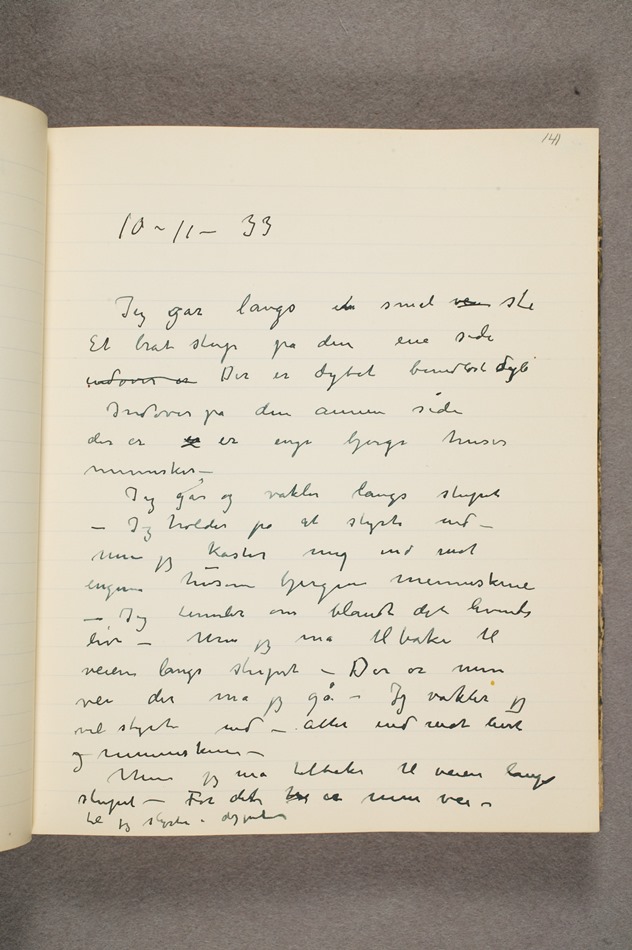 141
10-11-33
Jeg går langs et smal vei sti
Et brat stup på den ene side
indover er Der er dybet bundløst dyb
Indover på den annen side
der er er enge bjerge huser
mennesker –
Jeg går og vakler langs stupet
– Jeg holder på at styrte ned –
men jeg kaster mig ind mot
engene husene bjergene menneskene
– Jeg om blandt det levende
liv – Men jeg må tilbake til
veien langs stupet – Der er min
vei der må jeg gå – Jeg vakler jeg
vil styrte ned – atter ind mot livet
og menneskene –
Men jeg må tilbake til veien langs
stupet – For det er min vei –
til jeg styrter i dypet